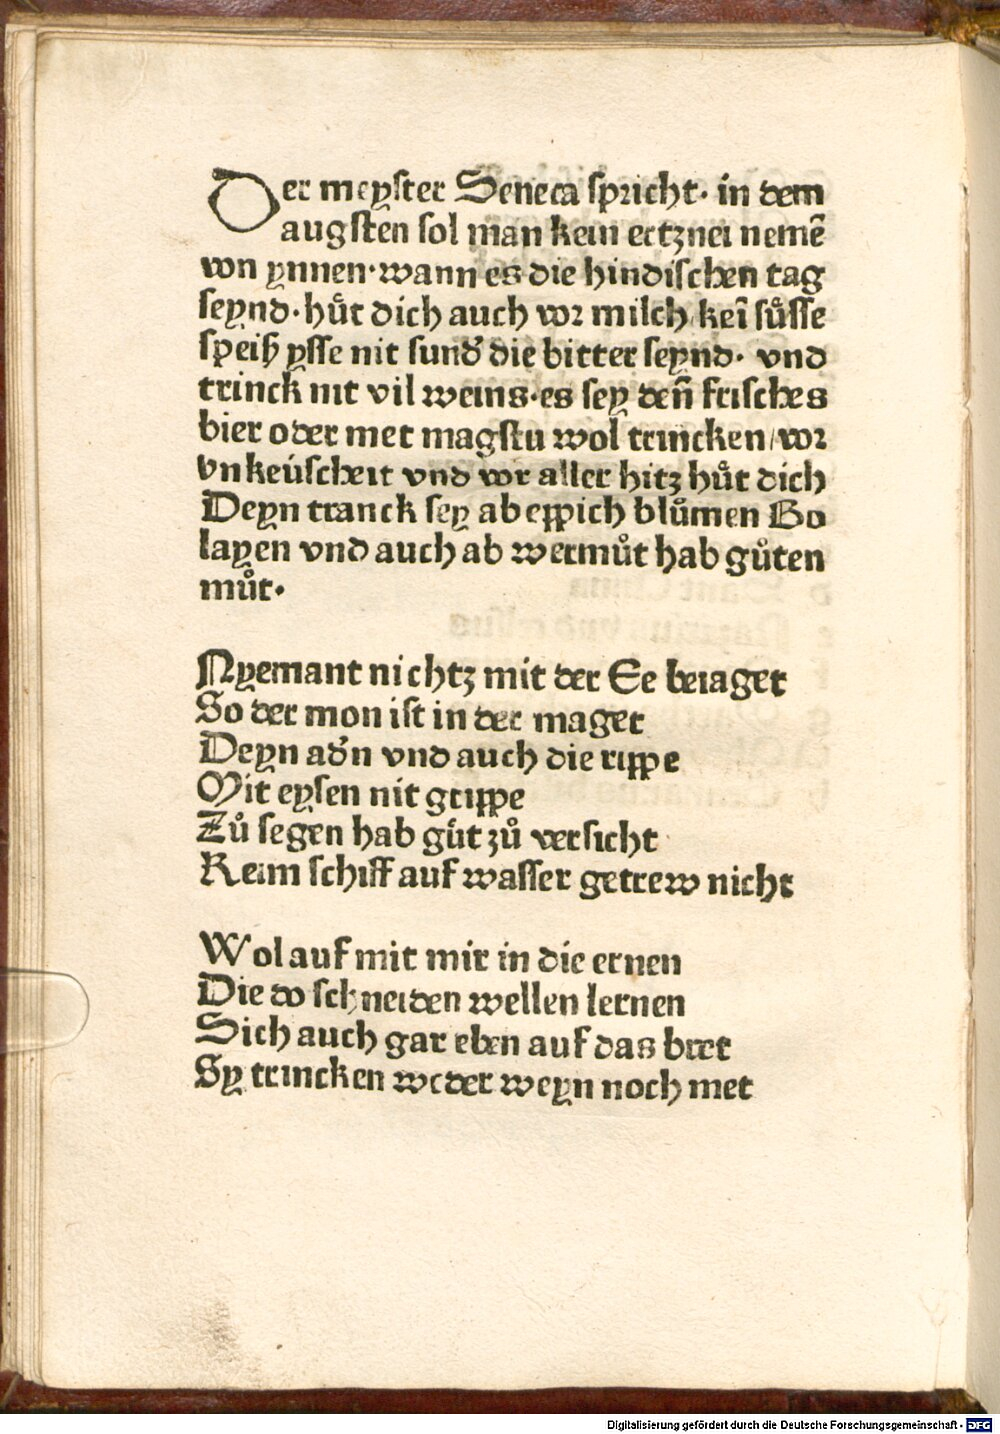 Der meyster Seneca spricht· in dem
augsten sol man kein ertznei nemē
von ynnen·wann es die hindischen tag
seynd·hůt dich auch vor milch/keī sůsse
speiß ysse nit sund̕ die bitter seynd· vnd
trinck nit vil weins·es sey deñ frisches
bier oder met magstu wol trincken/vor
vnkeúscheit vnd vor aller hitz hůt dich
Deyn tranck sey ab eppich blůmen Bo
layen vnd auch ab wermůt hab gůten
můt·
Nyemant nichtz mit der Ee betaget
So der mon ist in der maget
Deyn ad̕n vnd auch die rippe
Mit eysen nit grippe
Zů segen hab gůt zů versicht
Keim schiff auf wasser getrew nicht
Wol auf mit mir in die ernen
Die do schneiden wellen lernen
Sich auch gar eben auf das bret
Sy trincken weder weyn noch met
Digitalisierung gefördert durch die Deutsche Forschungsgemeinschaft - DFG